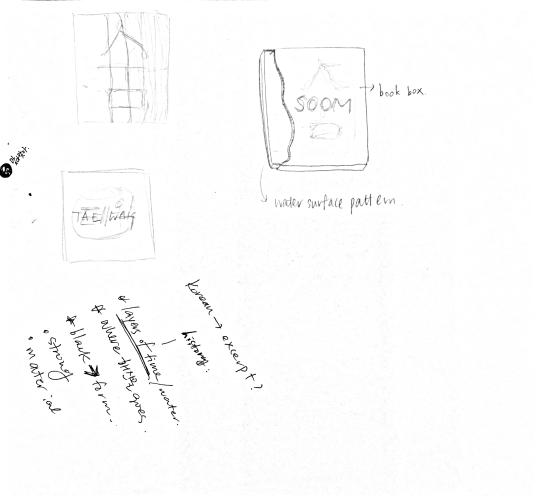 SOOM
book box.
water surface pattern.
Korean → excerpt?
history:
* layers of time/water.
* where goes.
* black → form.
• strong
• material